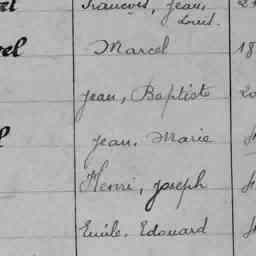 François, Jean,
Louis.
Marcel 18
Jean, Baptiste 20
Jean, Marie
Henri, Joseph
Emile, Edouard